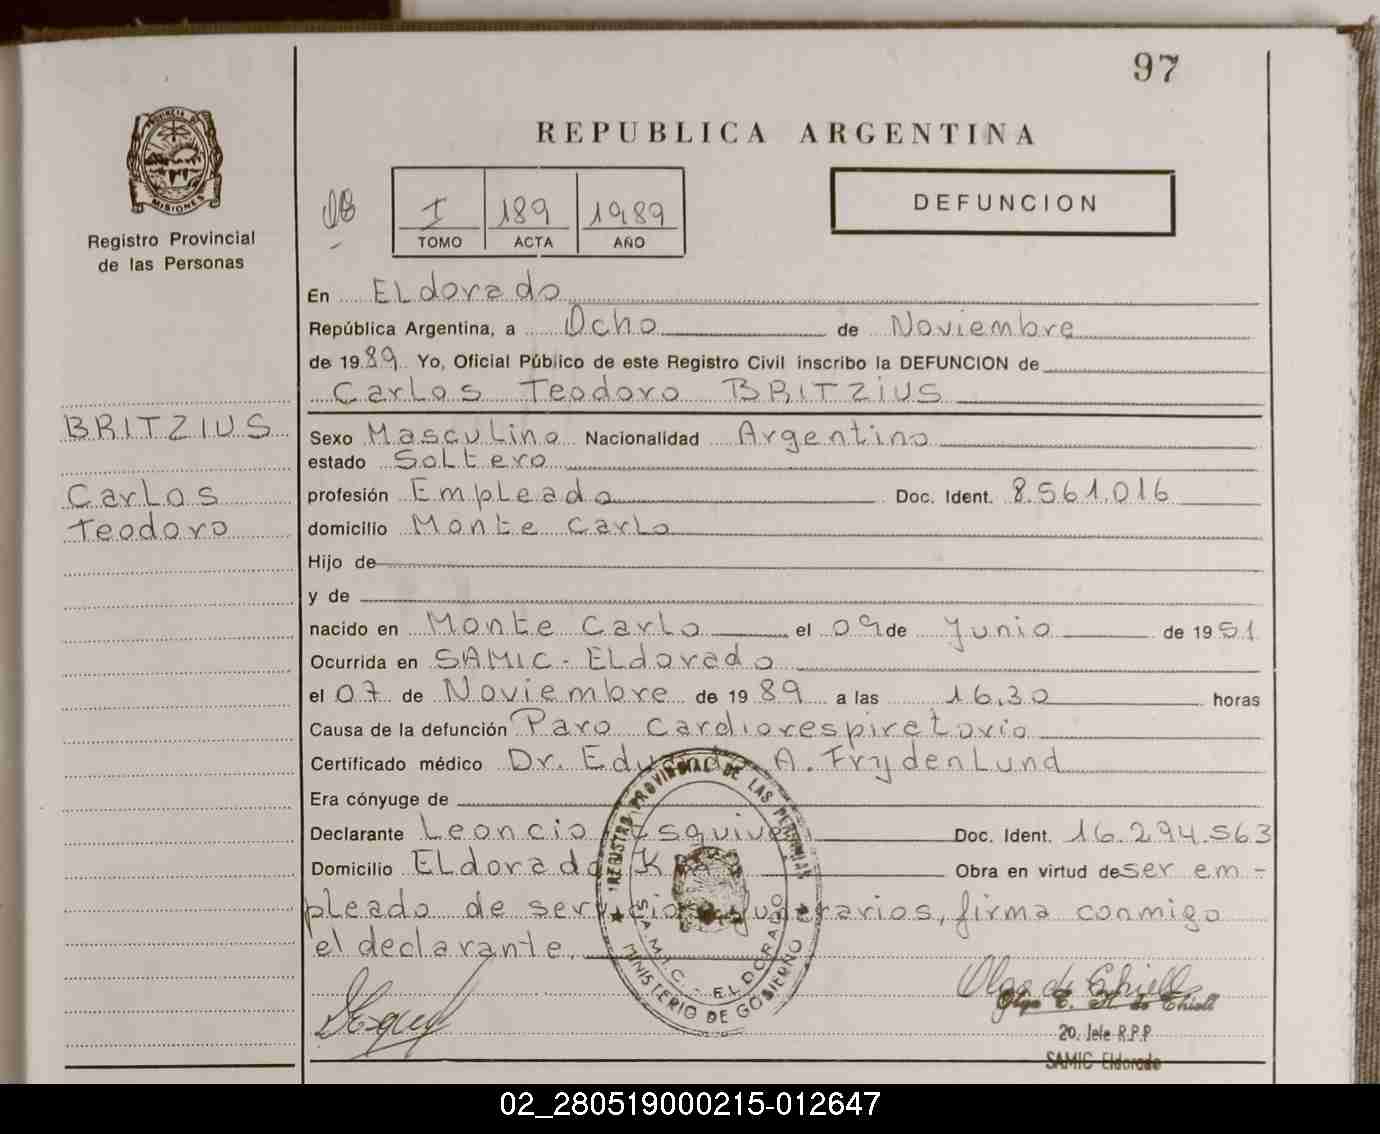 97
PROVINCIA DE
MISIONES
Registro Provincial
de las Personas
REPUBLICA ARGENTINA
I 189 1989
TOMO ACTA AÑO
DEFUNCION
En Eldorado
República Argentina, a Ocho de Noviembre
de 1989 Yo, Oficial Público de este Registro Civil inscribo la DEFUNCION de
Carlos Teodoro BRITZIUS
BRITZIUS
Carlos
Teodoro
Sexo Masculino Nacionalidad Argentino
estado Soltero
profesión Empleado Doc. Ident. 8.561.016
domicilio Monte Carlo
Hijo de
y de
nacido en Monte Carlo el 09 de Junio de 1951
Ocurrida en SAMIC - Eldorado
el 07 de Noviembre de 1989 a las 16,30 horas
Causa de la defunción Paro cardiorespiretorio
Certificado médico Dr. Eduardo A. Frydenlund
Era cónyuge de
Declarante Leoncio Esquivel Doc. Ident. 16.294.563
Domicilio Eldorado K Obra en virtud de ser em-
pleado de servicios funerarios, firma conmigo
el declarante.
REGISTRO PROVINCIAL DE LAS PERSONAS
S.A.M.I.C. - ELDORADO
MINISTERIO DE GOBIERNO
Olga de Chiell
Olga E. H. de Chiell
20. Jefe R.P.P
SAMIC Eldorado
02_280519000215-012647